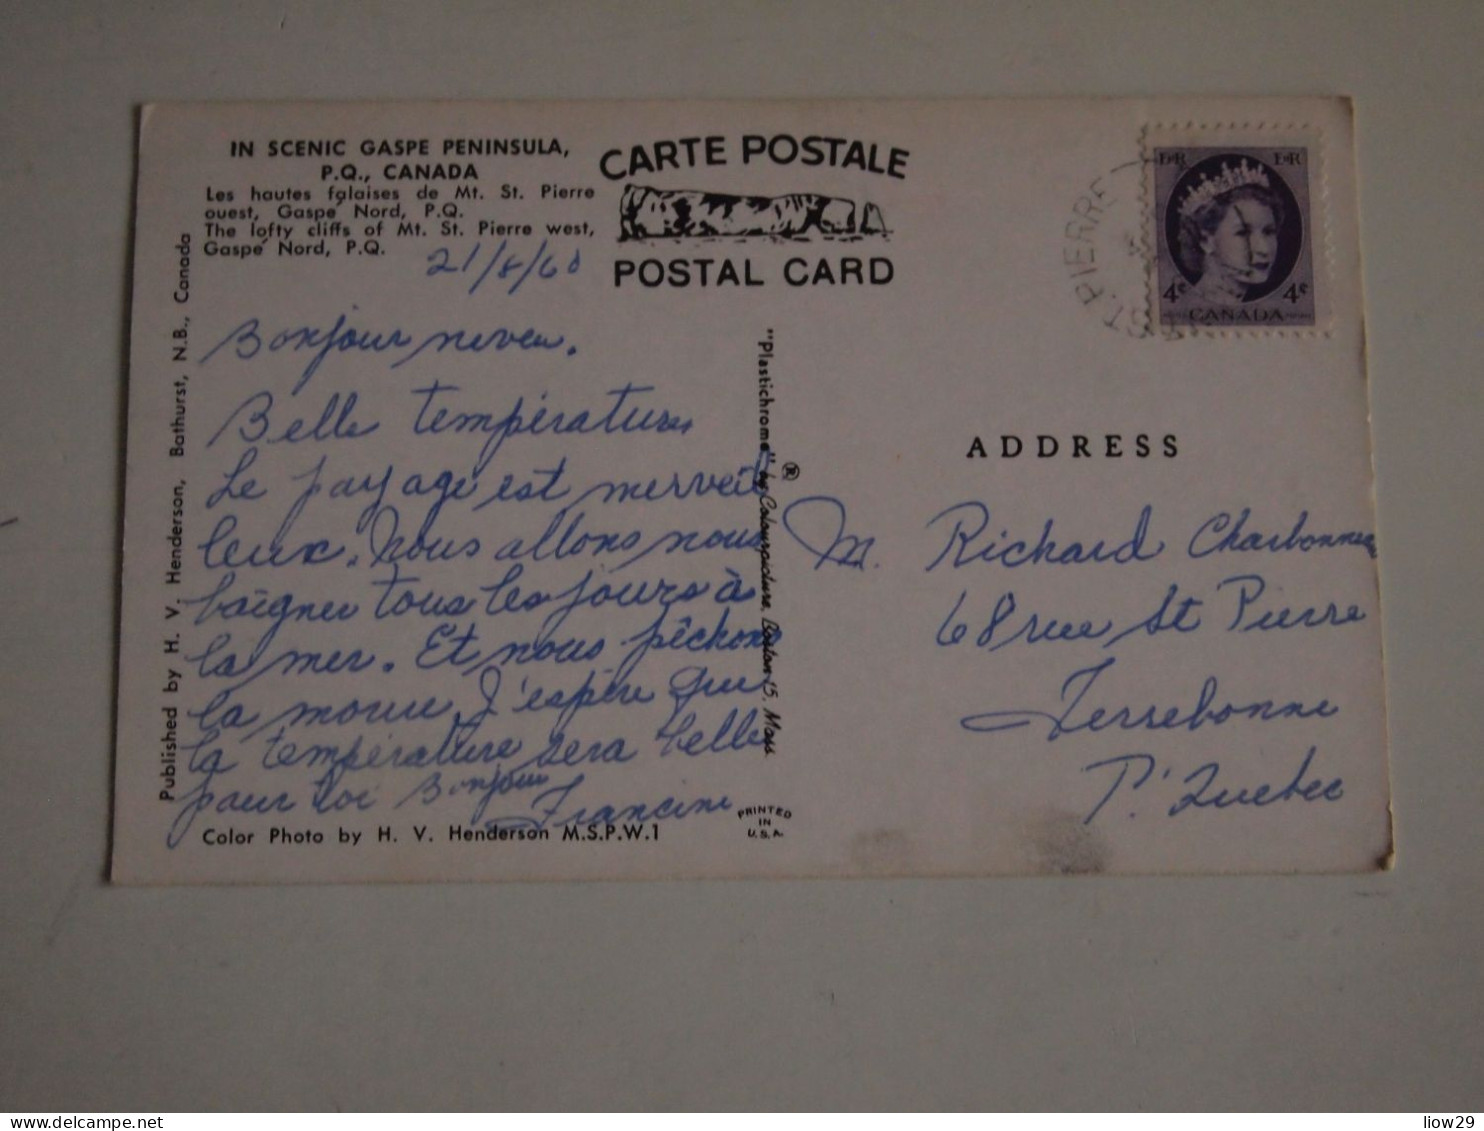 IN SCENIC GASPE PENINSULA,
P.Q., CANADA
Les hautes falaises de Mt. St. Pierre
ouest, Gaspé Nord, P.Q.
The lofty cliffs of Mt. St. Pierre west,
Gaspé Nord, P.Q.
21/8/60
Bonjour neveu.
Belle température
Le payage est merveil
leux. Nous allons nous
baigner tous les jours à
la mer. Et nous pêchons
la morue. J'espère que
la température sera belle
pour toi Bonjour
Francine
Color Photo by H. V. Henderson M.S.P.W.1
Published by H. V. Henderson, Bathurst, N.B., Canada
CARTE POSTALE
POSTAL CARD
"Plastichrome" ® by Colourpicture, Boston 15, Mass.
PRINTED
IN
U.S.A.
ST. PIERRE
E R E R
4¢ 4¢
CANADA
ADDRESS
M. Richard Charbonneau
68 rue St Pierre
Terrebonne
P. Quebec
www.delcampe.net
liow29